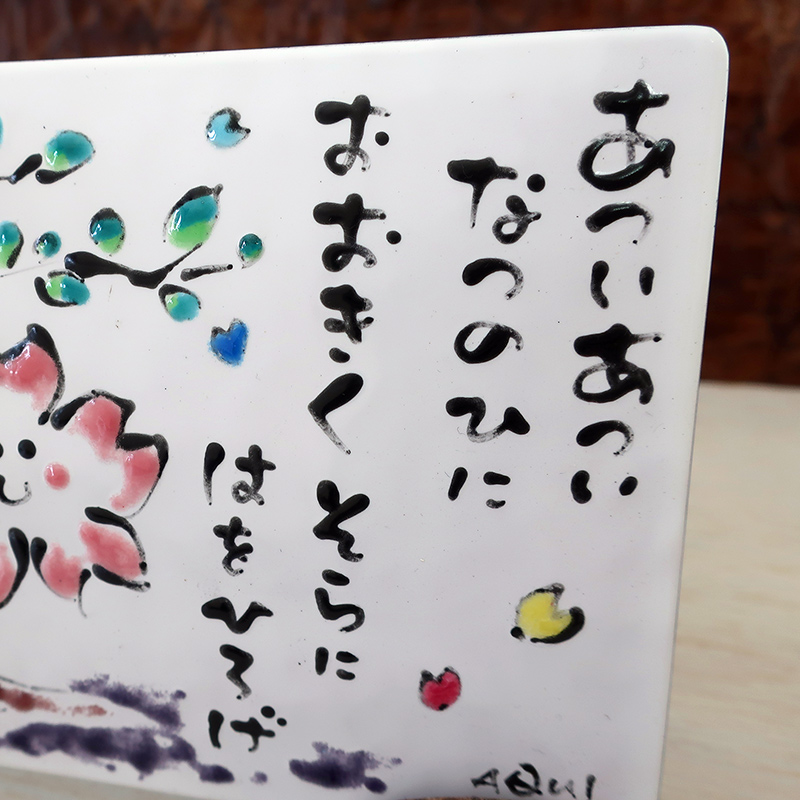 あついあつい
なつのひに
おおきくそらに
はをひろげ
AQUI